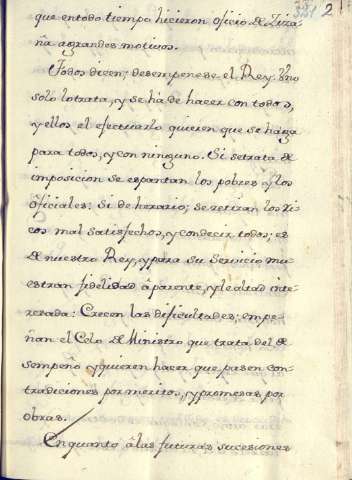 321 2
que entodo tiempo hicieron oficio de Ziza-
ña agrandes motivos.
Todos dicen; desempeñese el Rey. Uno
solo lo trata, y se há de hacer con todos,
y ellos el efectuarlo quieren que se haga
para todos, y con ninguno. Si setrata de
imposicion se espantan los pobres y los
oficiales: Si de herario; se retiran los ri-
cos mal satisfechos, y condecir todos; es
de nuestro Rey, y para su servicio mu-
estran fidelidad âparente, y lealtad inte-
resada: Crecen las dificultades; empe-
ñan el Celo de Ministro que trata del de
sempeño y quieren hacer que pasen con-
tradiciones por meritos, y promesas por
obras.
En quanto â las futuras sucesiones